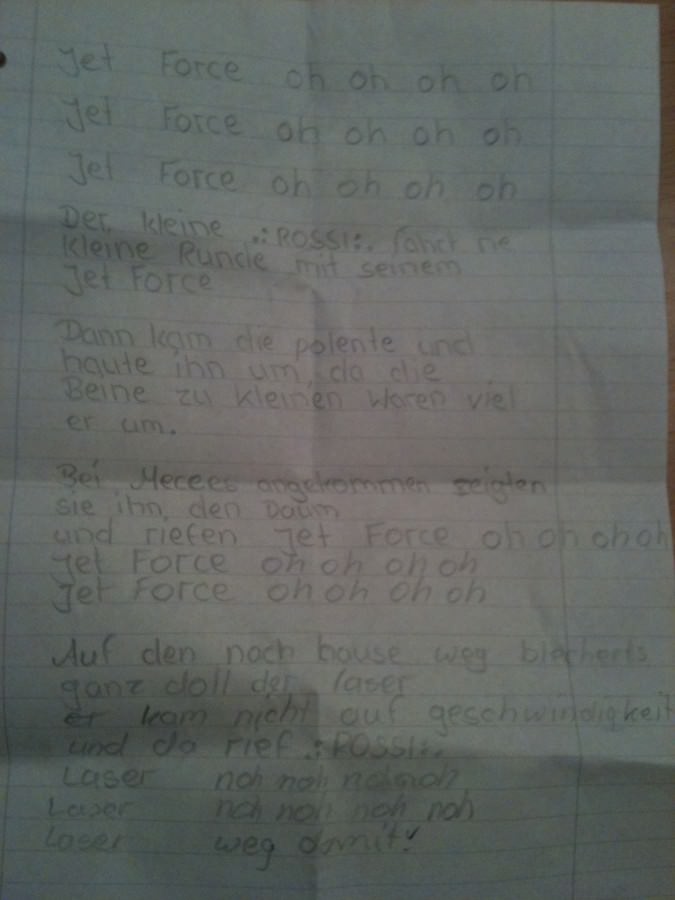 Jet Force oh oh oh oh
Jet Force oh oh oh oh
Jet Force oh oh oh oh
Der kleine .:ROSSI:. fährt ne
kleine Runde mit seinem
Jet Force
Dann kam die polente und
haute ihn um, da die
Beine zu kleinen waren viel
er um.
Bei Mecces angekommen zeigten
sie ihn, den Daum
und riefen Jet Force oh oh oh oh
Jet Force oh oh oh oh
Jet Force oh oh oh oh
Auf den nach hause weg
ganz doll der laser
er kam nicht auf geschwindigkeit
und da rief .:ROSSI:.
Laser noh noh noh noh
Laser noh noh noh noh
Laser weg damit!